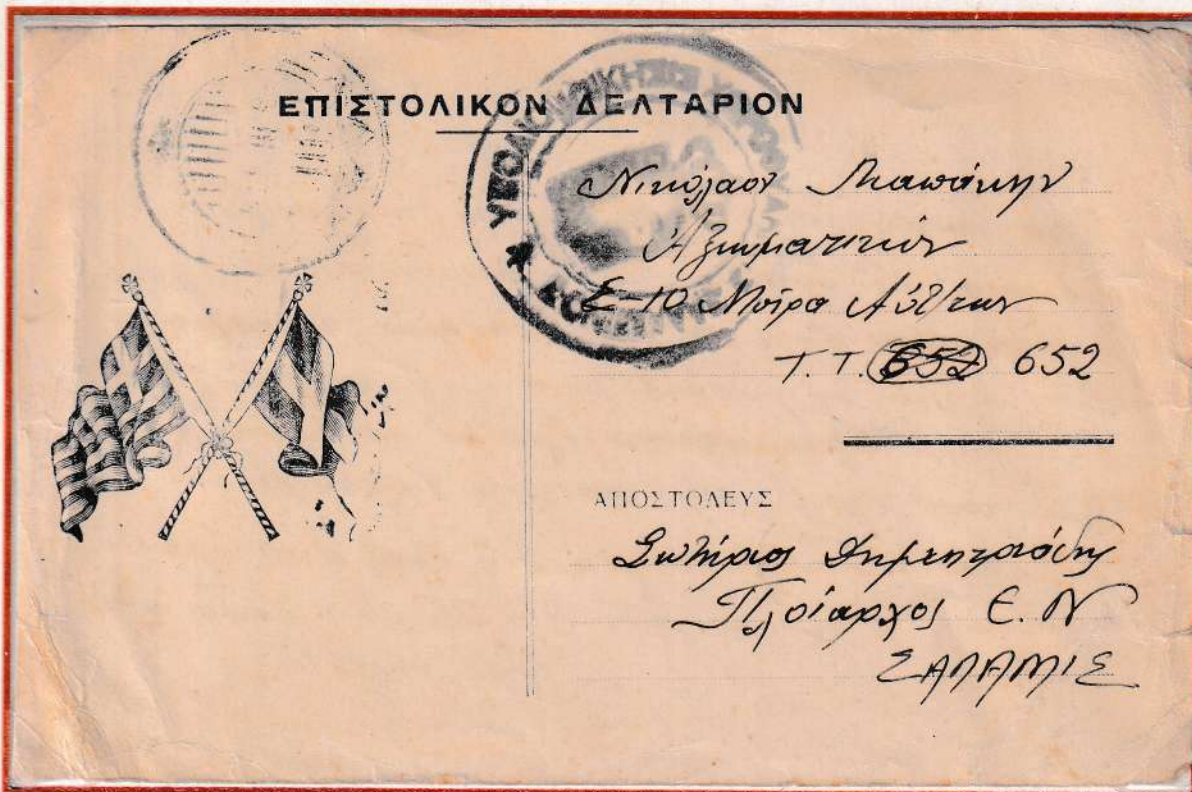 ΕΠΙΣΤΟΛΙΚΟΝ ΔΕΛΤΑΡΙΟΝ
Νικόλαον
Αξιωματικόν
Σ-10 Μοίρα
Τ.Τ. 652 652
ΑΠΟΣΤΟΛΕΥΣ
Σωτήριος Δημητριάδης
Πλοίαρχος Ε.Ν
ΣΑΛΑΜΙΣ